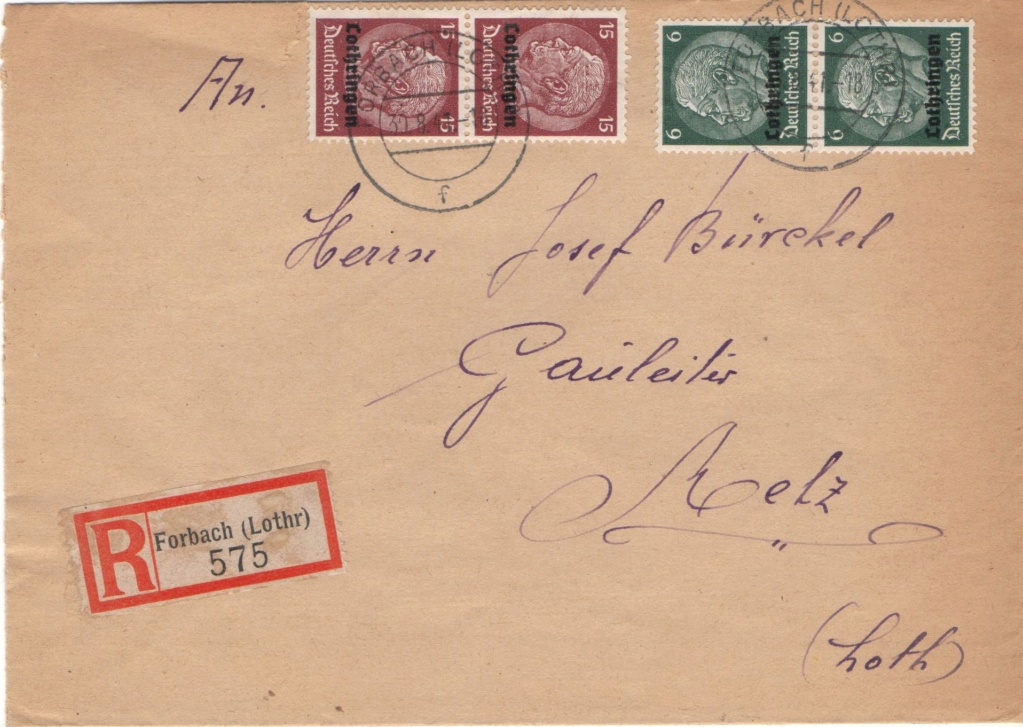 An.
15 15
Lothringen Lothringen
Deutsches Reich Deutsches Reich
15 15
6 6
Lothringen Lothringen
Deutsches Reich Deutsches Reich
6 6
FORBACH (LOTHR)
f
FORBACH (LOTHR)
f
Herrn Josef Bürckel
Gauleiter
Metz
(Loth)
R Forbach (Lothr)
575